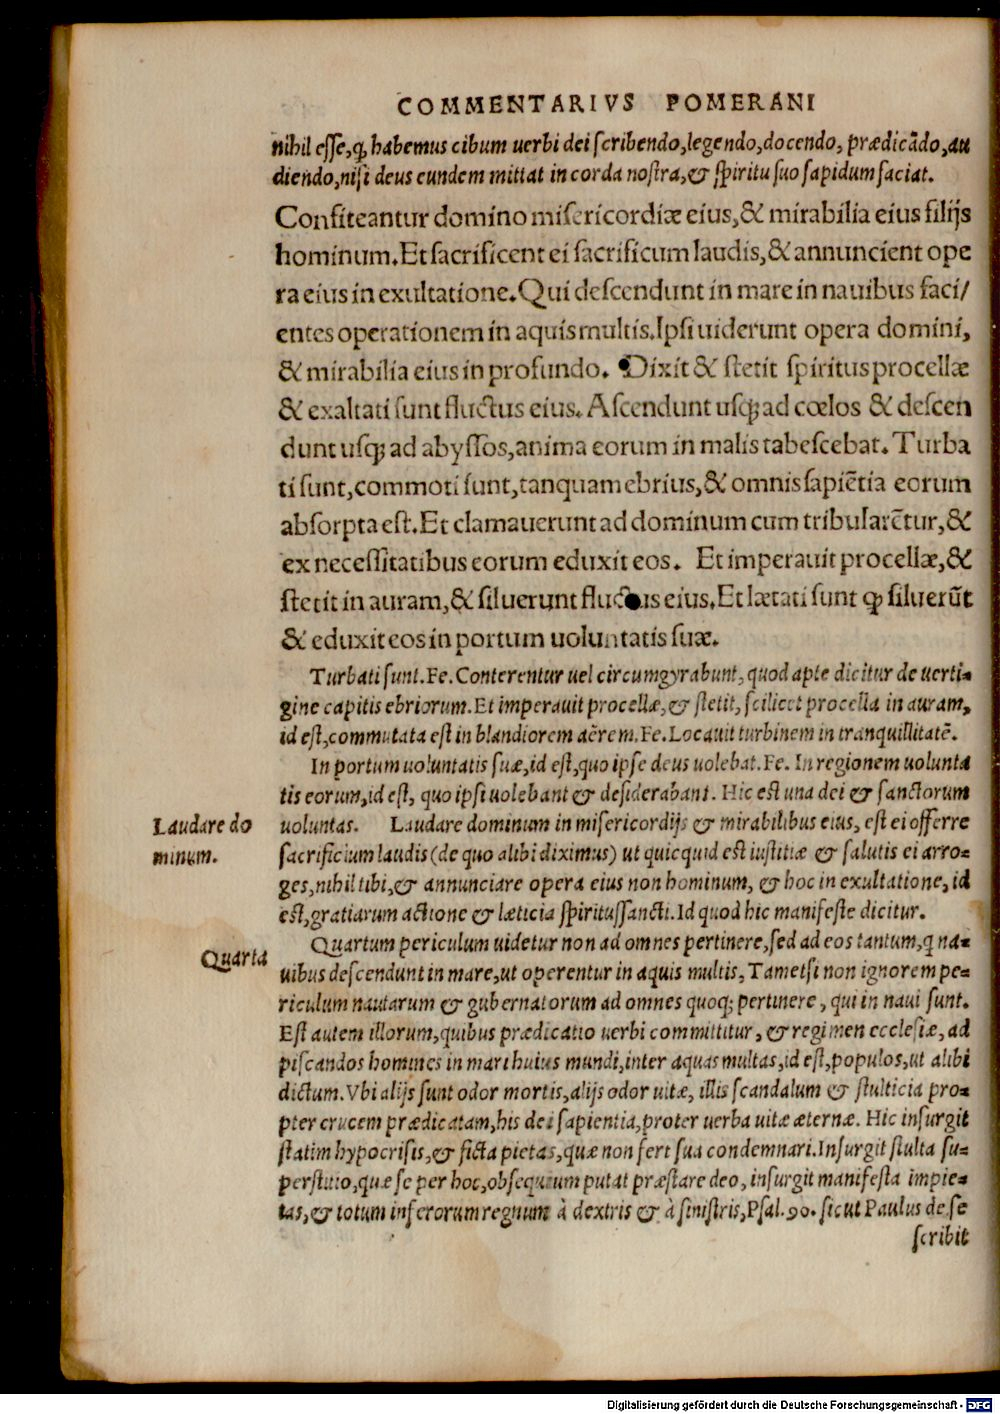 COMMENTARIVS POMERANI
nihil esse, ꝙ habemus cibum uerbi dei scribendo, legendo, docendo, prædicãdo, au
diendo, nisi deus eundem mittat in corda nostra, & spiritu suo sapidum faciat.
Confiteantur domino misericordiæ eius, & mirabilia eius filijs
hominum. Et sacrificent ei sacrificum laudis, & annuncient ope
ra eius in exultatione. Qui descendunt in mare in nauibus faci/
entes operationem in aquis multis. Ipsi uiderunt opera domini,
& mirabilia eius in profundo. Dixit & stetit spiritus procellæ
& exaltati sunt fluctus eius. Ascendunt usqꝫ ad cœlos & descen
dunt usqꝫ ad abyssos, anima eorum in malis tabescebat. Turba
ti sunt, commoti sunt, tanquam ebrius, & omnis sapiẽtia eorum
absorpta est. Et clamauerunt ad dominum cum tribularẽtur, &
ex necessitatibus eorum eduxit eos. Et imperauit procellæ, &
stetit in auram, & siluerunt fluctus eius. Et lætati sunt ꝙ siluerũt
& eduxit eos in portum uoluntatis suæ.
Turbati sunt. Fe. Conterentur uel circumgyrabunt, quod apte dicitur de uerti-
gine capitis ebriorum. Et imperauit procellæ, & stetit, scilicet procella in auram,
id est, commutata est in blandiorem aẽrem. Fe. Locauit turbinem in tranquillitatẽ.
In portum uoluntatis suæ, id est, quo ipse deus uolebat. Fe. In regionem uolunta
tis eorum, id est, quo ipsi uolebant & desiderabant. Hic est una dei & sanctorum
uoluntas. Laudare dominum in misericordijs & mirabilibus eius, est ei offerre
Laudare do
minum.
sacrificium laudis (de quo alibi diximus) ut quicquid est iustitiæ & salutis ei arro-
ges, nihil tibi, & annunciare opera eius non hominum, & hoc in exultatione, id
est, gratiarum actione & læticia spiritussancti. Id quod hic manifeste dicitur.
Quarta
Quartum periculum uidetur non ad omnes pertinere, sed ad eos tantum, q̃ na-
uibus descendunt in mare, ut operentur in aquis multis, Tametsi non ignorem pe-
riculum nautarum & gubernatorum ad omnes quoqꝫ pertinere, qui in naui sunt.
Est autem illorum, quibus prædicatio uerbi committitur, & regimen ecclesiæ, ad
piscandos homines in mari huius mundi, inter aquas multas, id est, populos, ut alibi
dictum. Vbi alijs sunt odor mortis, alijs odor uitæ, illis scandalum & stulticia pro-
pter crucem prædicatam, his dei sapientia, proter uerba uitæ æternæ. Hic insurgit
statim hypocrisis, & ficta pietas, quæ non fert sua condemnari. Insurgit stulta su-
perstitio, quæ se per hoc, obsequium putat præstare deo, insurgit manifesta impie-
tas, & totum inferorum regnum à dextris & à sinistris, Psal. 90. sicut Paulus de se
scribit
Digitalisierung gefördert durch die Deutsche Forschungsgemeinschaft - DFG